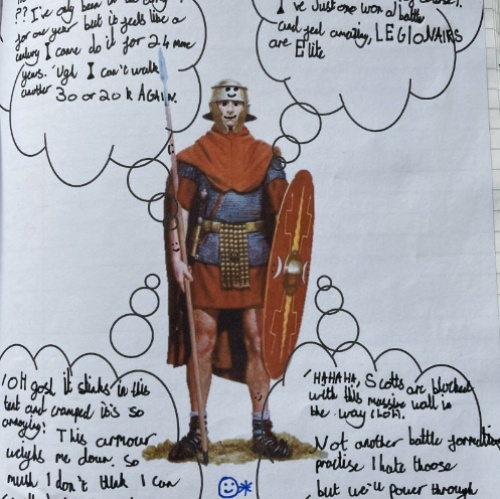 ?? I've only been in the
for one year but it feels like a
century I cane do it for 24 more
years. Ugh I can't walk
another 30 or 20 k AGAIN.
I've just one won a battle
and feel amazing, LEGIONAIRS
are Elite
'OH gosh it stinks in this
tent and cramped it's so
annoying! This armour
weighs me down. So
much I don't think I can
'HAHAHA, Scotts are blocked
with this massive wall in
the way
Not another battle formation
practise I hate those
but we'll power through